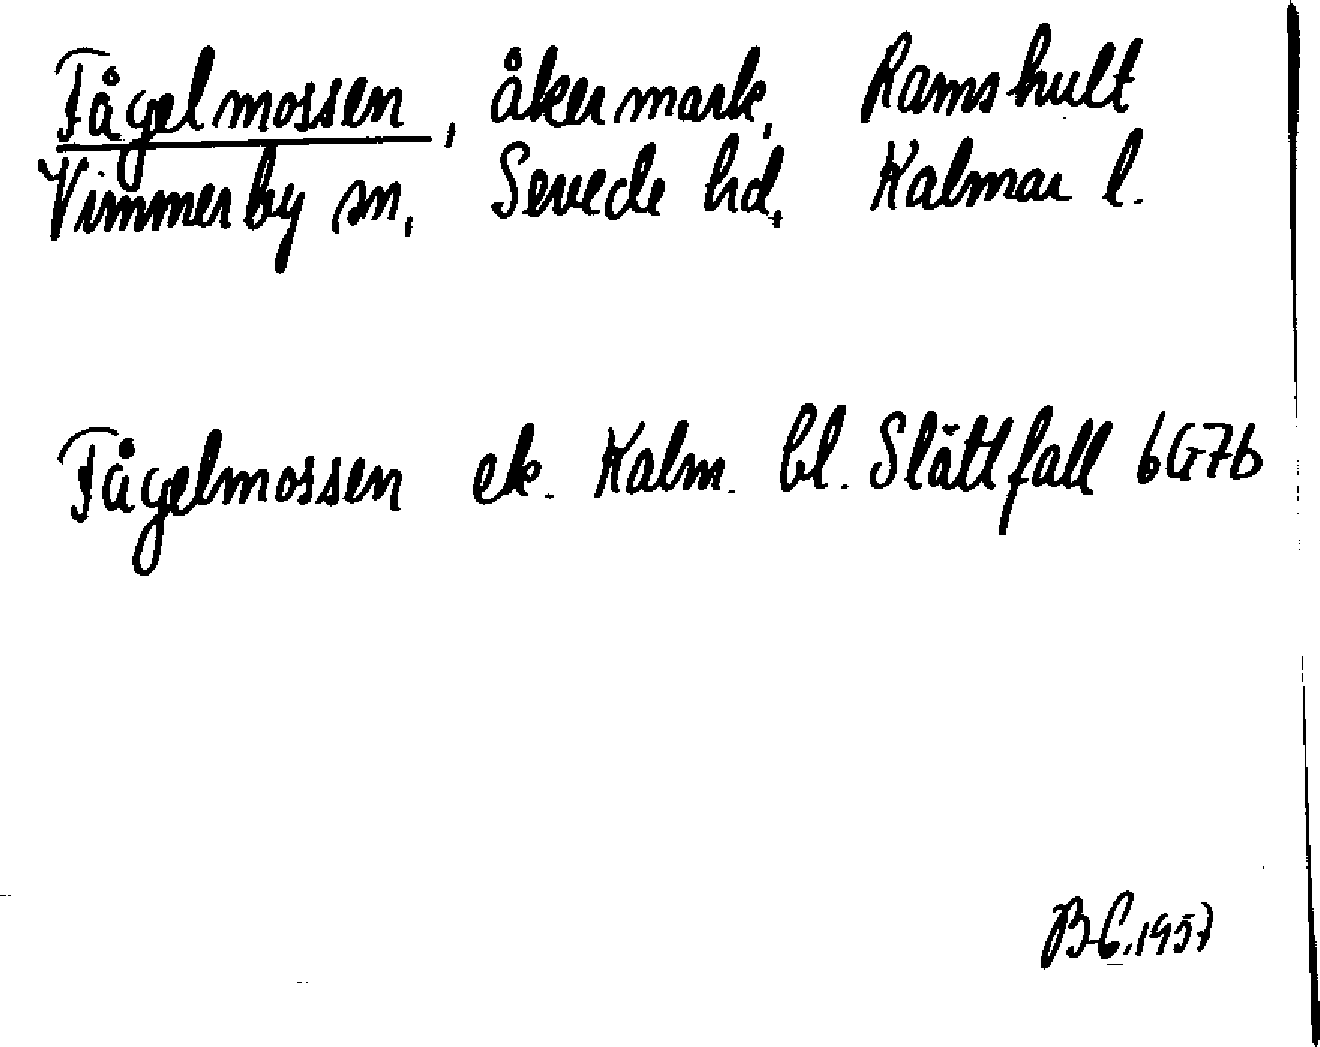 Fågelmossen, åkermark, Ramshult
Vimmerby sn, Sevede hd, Kalmar l.
Fågelmossen ek. Kalm. bl. Slättfall 6G7b
B-C. 1957